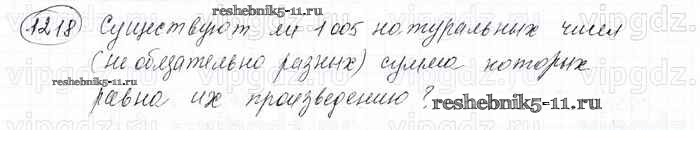 1218 Существуют ли 1005 натуральных чисел
reshebnik5-11.ru
(не обязательно разных) сумма которых
reshebnik5-11.ru
равна их произведению?
reshebnik5-11.ru
vipgdz.